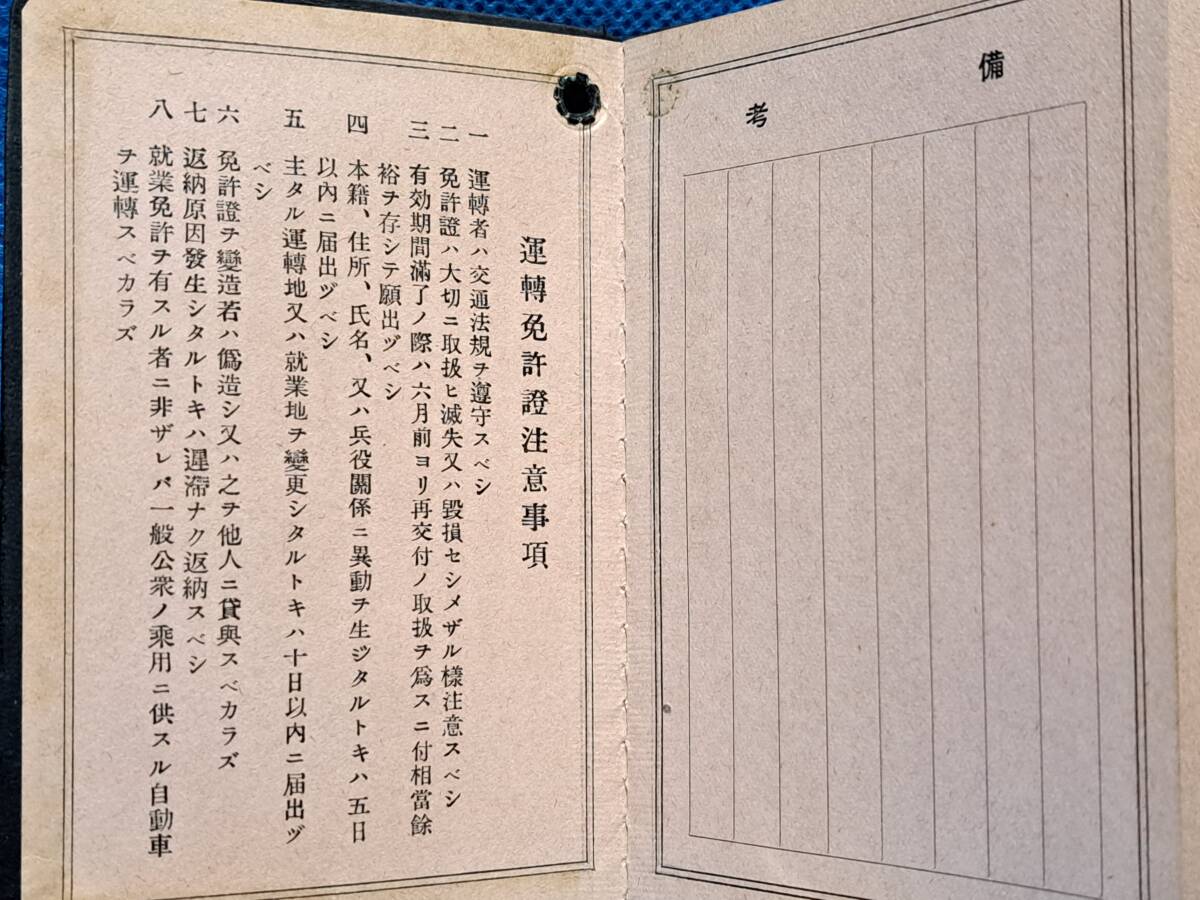 備考
運轉免許證注意事項
一 運轉者ハ交通法規ヲ遵守スベシ
二 免許證ハ大切ニ取扱ヒ滅失又ハ毀損セシメザル樣注意スベシ
三 有効期間滿了ノ際ハ六月前ヨリ再交付ノ取扱ヲ爲スニ付相當餘
裕ヲ存シテ願出ヅベシ
四 本籍、住所、氏名、又ハ兵役關係ニ異動ヲ生ジタルトキハ五日
以内ニ届出ヅベシ
五 主タル運轉地又ハ就業地ヲ變更シタルトキハ十日以内ニ届出ヅ
ベシ
六 免許證ヲ變造若ハ僞造シ又ハ之ヲ他人ニ貸與スベカラズ
七 返納原因發生シタルトキハ遲滯ナク返納スベシ
八 就業免許ヲ有スル者ニ非ザレバ一般公衆ノ乘用ニ供スル自動車
ヲ運轉スベカラズ